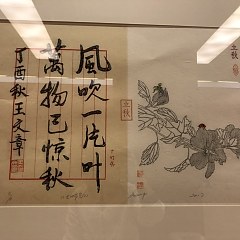 風吹一片叶
萬物已惊秋
丁酉秋王文章
立秋
立秋